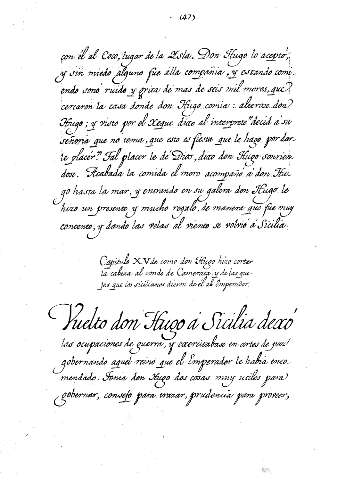 (47)
con él al Coco, lugar de la Isla. Don Hugo lo aceptó,
y sin miedo alguno fue alla compañia, y estando comi-
endo sono ruido y grita de mas de seis mil moros, que
cercaron la casa donde don Hugo comia: alterose don
Hugo; y visto por el Xeque dixo al interprete "decid a su
señoria que no tema, que esto es fiesta que le hago por dar-
le placer." Tal placer le de Dios, dixo don Hugo sonrien-
dose. Acabada la comida el moro acompañó á don Hu-
go hasta la mar, y entrando en su galera don Hugo le
hizo un presente y mucho regalo, de manera que fue muy
contento, y dando las velas al viento se volvió á Sicilia.
Capitulo XV de como don Hugo hizo cortar
la cabeza al conde de Camarata, y de las que-
jas que los sicilianos dieron de él al Emperador.
Vuelto don Hugo á Sicilia dexó
las ocupaciones de guerra, y exercitabase en artes de paz
gobernando aquel reino que el Emperador le habia enco-
mendado. Tenia don Hugo dos cosas muy utiles para
gobernar, consejo para trazar, prudencia para proveer,